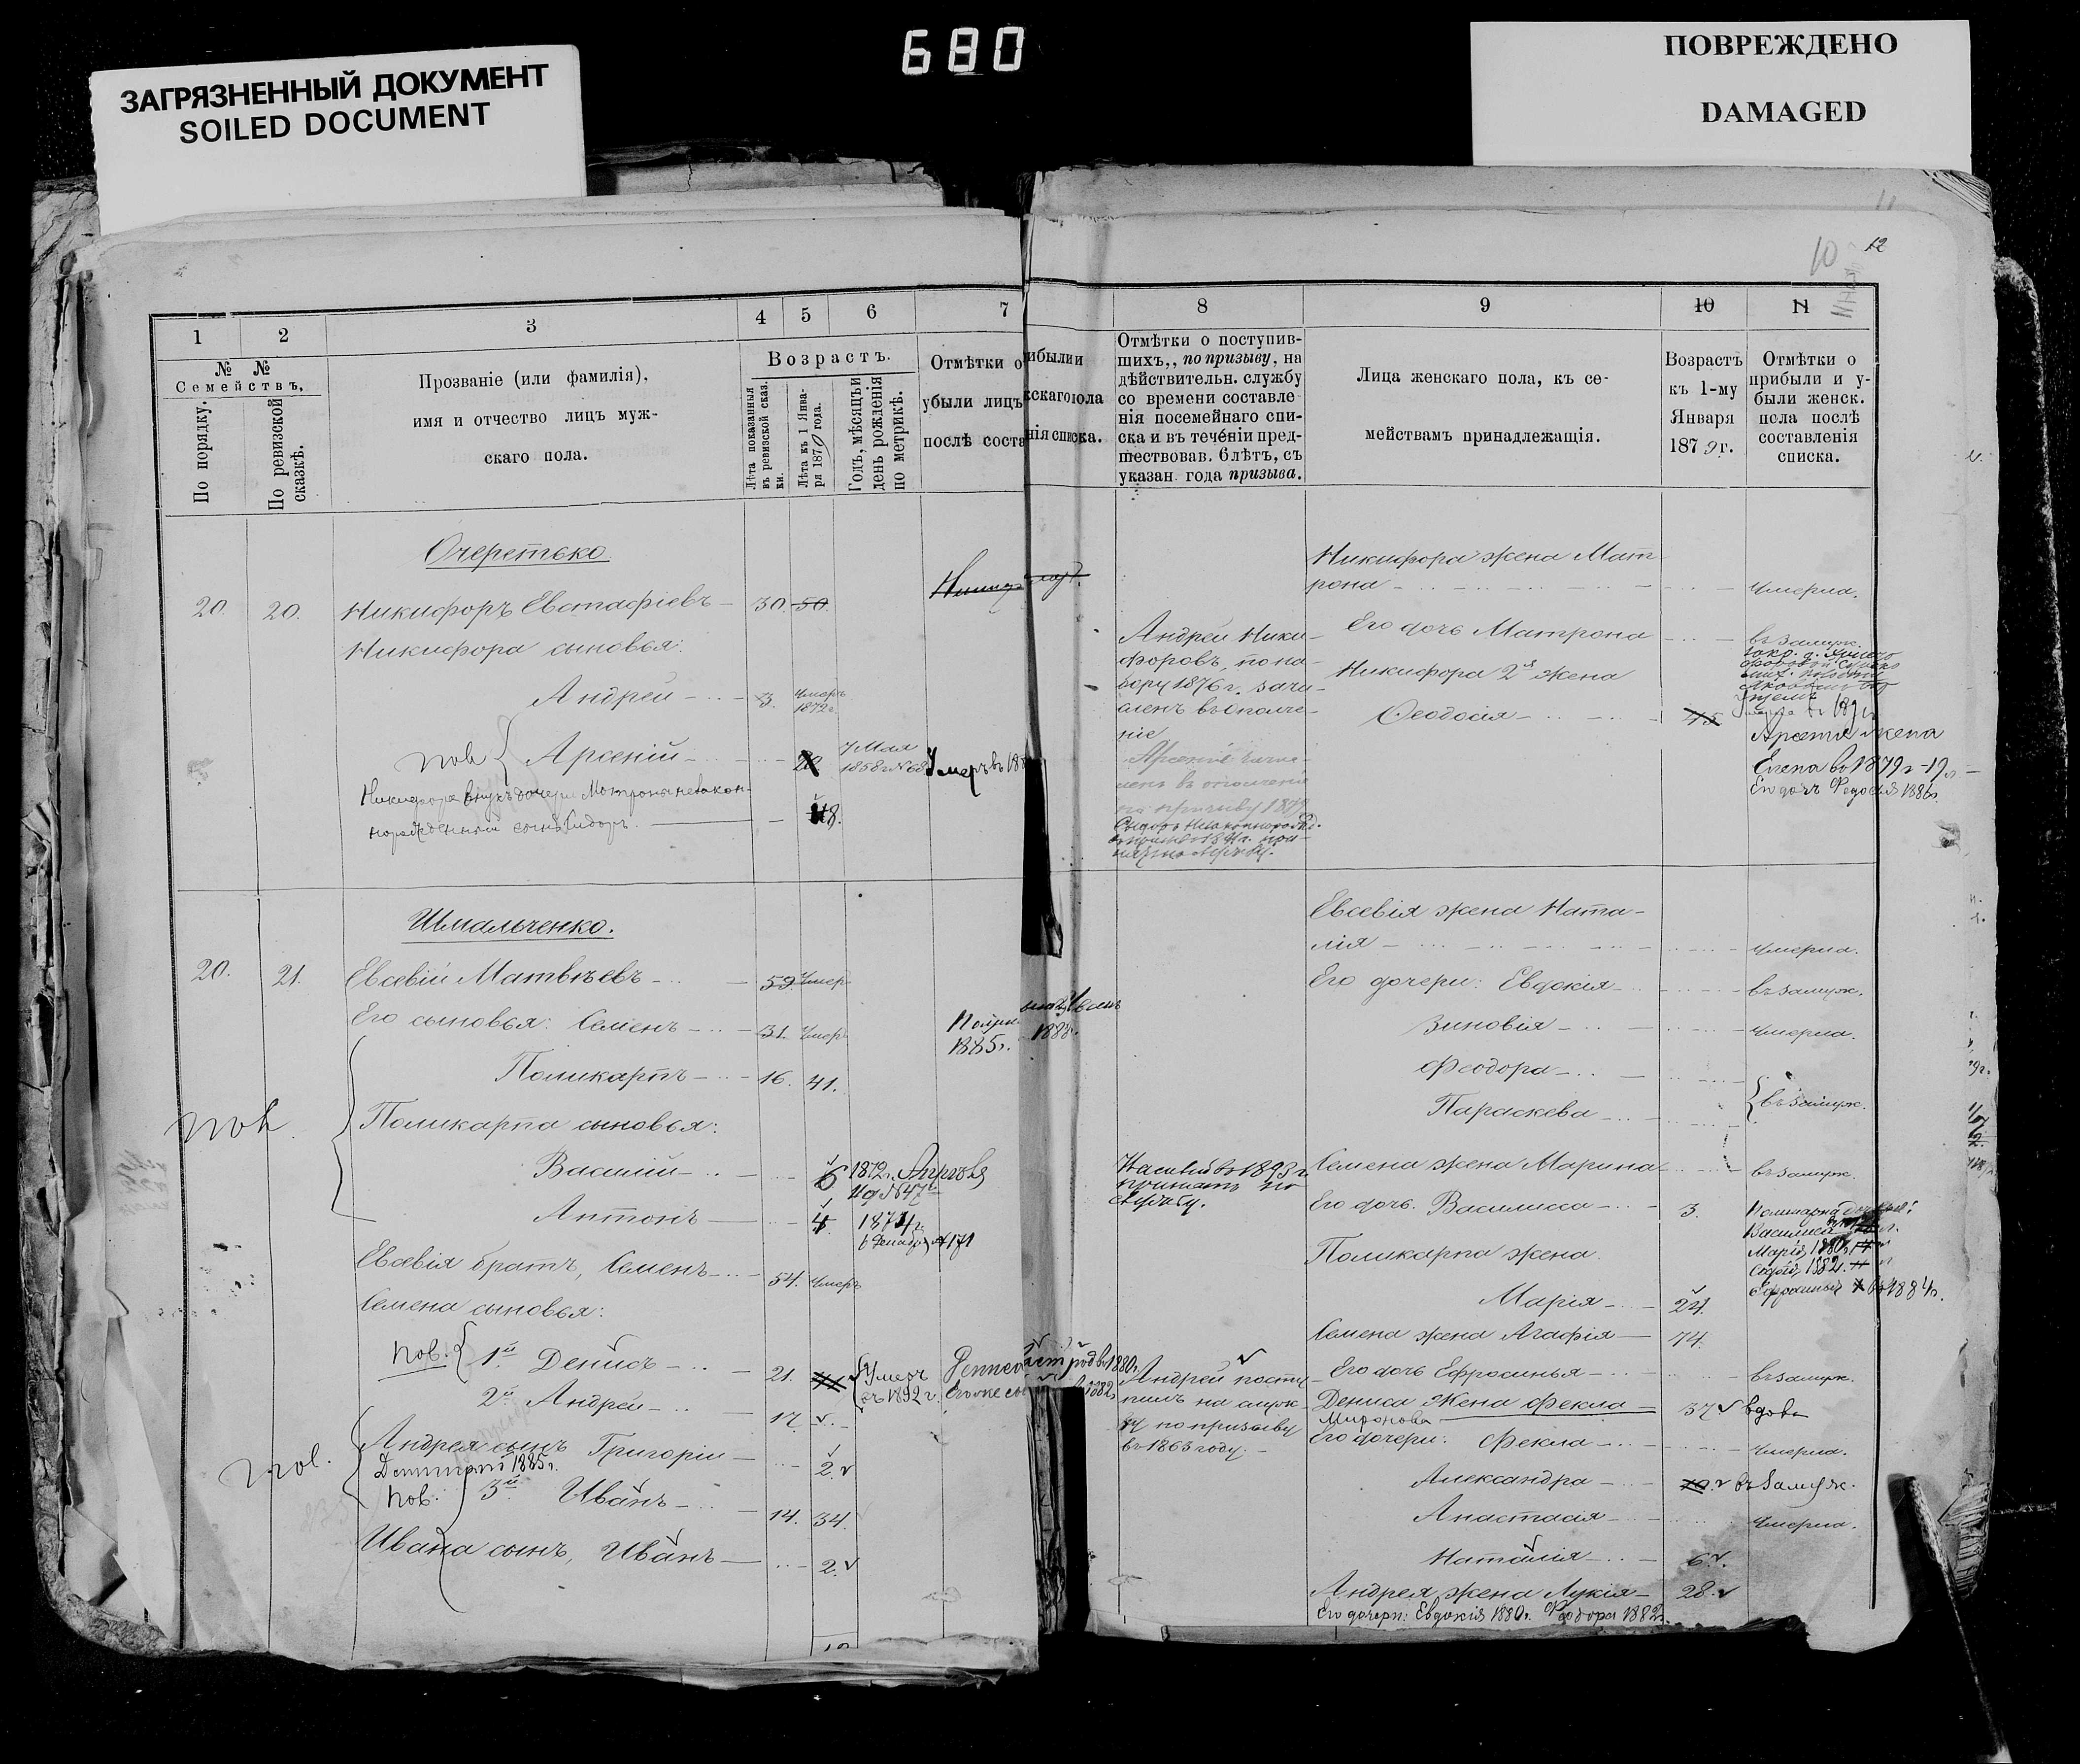 680
ЗАГРЯЗНЕННЫЙ ДОКУМЕНТ
SOILED DOCUMENT
ПОВРЕЖДЕНО
DAMAGED
10 12
1 2 3 4 5 6 7
№ №
Семействъ,
По порядку.
По ревизской сказкѣ.
Прозваніе (или фамилія),
имя и отчество лицъ муж-
скаго пола.
Возрастъ.
Лѣта показанныя въ ревизской сказ. ки.
Лѣта къ 1 Янва- ря 1870 года.
Годъ, мѣсяцъ и день рожденія по метрикѣ.
Отмѣтки о
убыли лицъ
послѣ соста
Очеретько
20. 20. Никифоръ Евстафіевъ 30. 50.
Никифора сыновья:
Андрей 3. Умеръ 1872 г.
пов { Арсеній 20 7 Мая 1858 г. № 68 Умеръ въ 188
Никифора внукъ дочери Мотроны незакон-
норожденный сынъ Сидоръ. 8.
Шмальченко.
20. 21. Евсевій Матвѣевъ 59. Умер
Его сыновья: Семенъ 31. Умер
1885 г. 1888.
Поликарпъ 16. 41.
пов.
Поликарпа сыновья:
Василій 6 1872 г. Апрѣля
Антонъ 4 1874 г. 6 Декабря № 171
Евсевія братъ, Семенъ 54. Умеръ
Семена сыновья:
пов. { 1й Денисъ 21. Умеръ въ 1892 г.
2й Андрей 17.
пов.
Андрея сынъ Григорій 2.
Димитрій 1885 г.
пов. 3й Иванъ 14. 34.
Ивана сынъ, Иванъ 2.
8 9 10 11
ибыли и
скаго пола
нія списка.
Отмѣтки о поступив-
шихъ,, по призыву, на
дѣйствительн. службу
со времени составле
нія посемейнаго спи-
ска и въ теченіи пред-
шествовав. 6 лѣтъ, съ
указан. года призыва.
Лица женскаго пола, къ се-
мействамъ принадлежащія.
Возрастъ
къ 1-му
Января
1879 г.
Отмѣтки о
прибыли и у-
были женск.
пола послѣ
составленія
списка.
Никифора жена Мат
рона Умерла.
Его дочь Матрона въ замуж.
Никифора 2я жена
Феодосія 45
Арсенія жена
Елена въ 1879 г - 19 л
Его дочь Федосія 1886 г.
Андрей Ники-
форовъ, по на-
бору 1876 г. зачи-
сленъ въ ополче-
ніе
Арсеній зачи-
сленъ въ ополченіе
по призыву 1879
Евсевія жена Ната-
лія Умерла.
Его дочери: Евдокія въ замуж.
Зиновія Умерла.
Феодора
Параскева } въ замуж.
Василій въ 1893 г.
принятъ на
службу.
Семена жена Марина въ замуж.
Его дочь. Василиса 3.
Поликарпа жена
Марія 24.
Поликарпа дочери:
Василиса
Марія 1880
Софія 1882.
Ефросинья въ 1884 г.
Семена жена Агафія 74.
Его дочь Ефросинья въ замуж.
Андрей посту
пилъ на служ
бу по призыву
въ 1863 году.
Дениса жена Фекла 37. вдова
Миронова
Его дочери: Фекла Умерла.
Александра 10. въ замуж.
Анастасія Умерла.
Наталія 6.
Андрея жена Лукія 28.
Его дочери: Евдокія 1880 г. Феодора 1882 г.